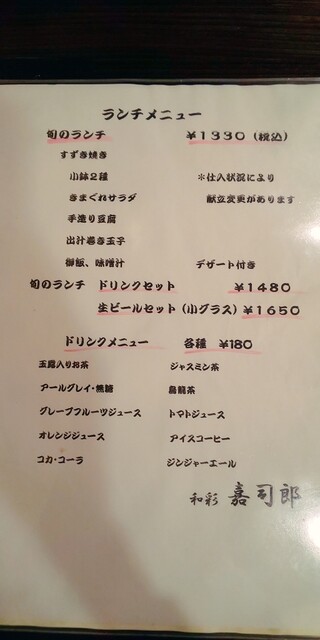 ランチメニュー
旬のランチ ￥1330 (税込)
すずき焼き
小鉢2種 *仕入状況により
きまぐれサラダ 献立変更があります
手造り豆腐
出汁巻き玉子
御飯、味噌汁 デザート付き
旬のランチ ドリンクセット ￥1480
生ビールセット (小グラス) ￥1650
ドリンクメニュー 各種 ￥180
玉露入りお茶 ジャスミン茶
アールグレイ・無糖 烏龍茶
グレープフルーツジュース トマトジュース
オレンジジュース アイスコーヒー
コカ・コーラ ジンジャーエール
和彩 嘉司郎